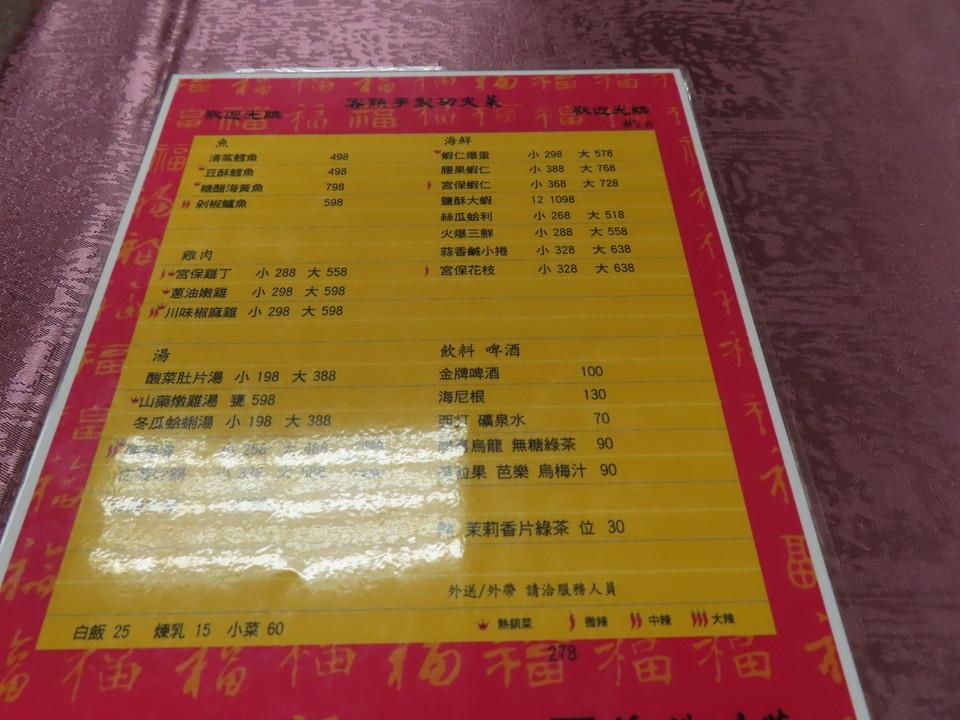 歡迎光臨 客棧手製功夫菜 歡迎光臨
魚
清蒸鱈魚 498
豆酥鱈魚 498
糖醋海黃魚 798
剁椒鱸魚 598
雞肉
宮保雞丁 小 288 大 558
蔥油嫩雞 小 298 大 598
川味椒麻雞 小 298 大 598
湯
酸菜肚片湯 小 198 大 388
山藥燉雞湯 甕 598
冬瓜蛤蜊湯 小 198 大 388
海鮮
蝦仁爆蛋 小 298 大 578
腰果蝦仁 小 388 大 768
宮保蝦仁 小 368 大 728
鹽酥大蝦 12 1098
絲瓜蛤利 小 268 大 518
火爆三鮮 小 288 大 558
蒜香鹹小捲 小 328 大 638
宮保花枝 小 328 大 638
飲料 啤酒
金牌啤酒 100
海尼根 130
西打 礦泉水 70
烏龍 無糖綠茶 90
果 芭樂 烏梅汁 90
茉莉香片綠茶 位 30
外送/外帶 請洽服務人員
白飯 25 煉乳 15 小菜 60
熱銷菜 微辣 中辣 大辣
278